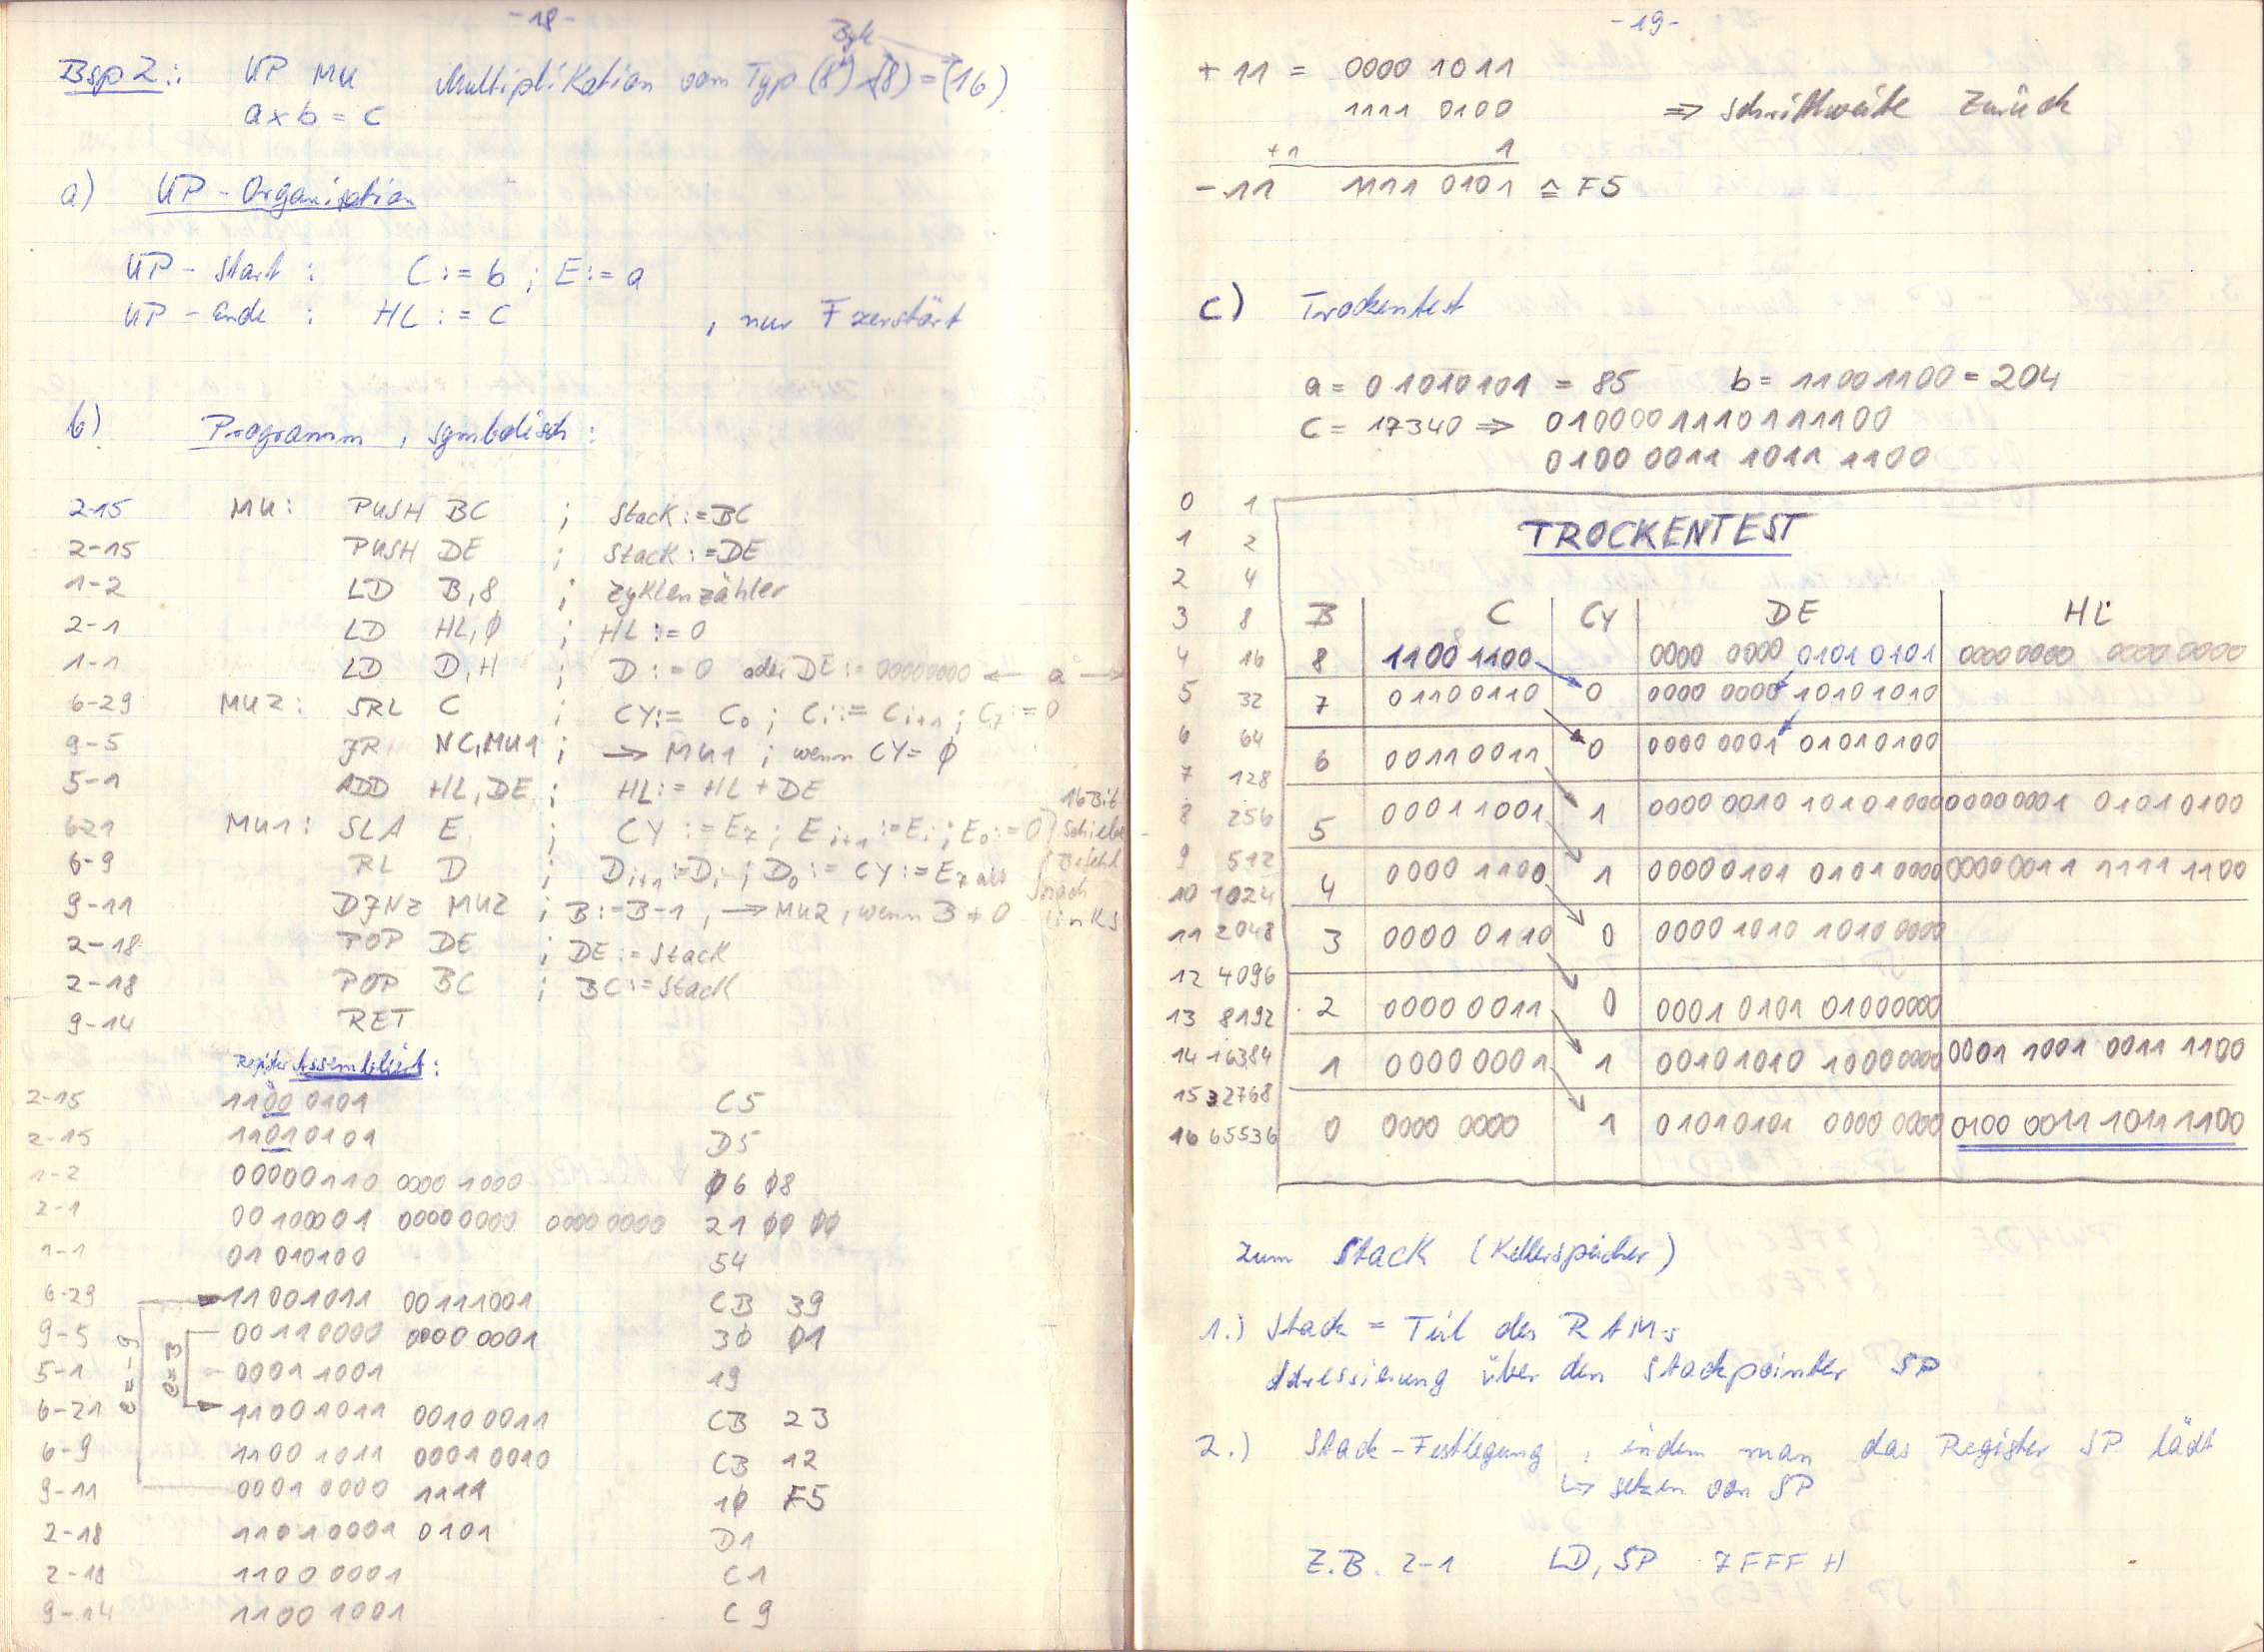 -18-
Byte
Bsp2: UP MU Multiplikation vom Typ (8)x(8)=(16)
a x b = c
a) UP-Organisation
UP-Start : C:=b ; E:=a
UP-Ende : HL:=C , nur F zerstört
b) Programm, symbolisch:
2-15 MU: PUSH BC ; Stack:=BC
2-15 PUSH DE ; Stack:=DE
1-2 LD B,8 ; Zyklenzähler
2-1 LD HL,Ø ; HL:=0
1-1 LD D,H ; D:=0 oder DE:=00000000 ← a →
6-29 MU2: SRL C ; CY:= C₀ ; Ci:=Ci+1 ; C7:=0
9-5 JR NC,MU1 ; → MU1 ; wenn CY=Ø
5-1 ADD HL,DE ; HL:=HL+DE
621 MU1: SLA E ; CY:=E7 ; Ei+1:=Ei ; E0:=0 } 16Bit Schiebe
6-9 RL D ; Di+1:=Di ; D0:=CY:=E7 alt Befehl nach
9-11 DJNZ MU2 ; B:=B-1, → MU2, wenn B≠0 links
2-18 POP DE ; DE:=Stack
2-18 POP BC ; BC:=Stack
9-14 RET
Register Assembliert:
2-15 1100 0101 C5
2-15 11010101 D5
1-2 00000110 0000 1000 Ø6 Ø8
2-1 00100001 00000000 0000 0000 21 ØØ ØØ
1-1 01 010100 54
6-29 11001011 00111001 CB 39
9-5 00110000 0000 0001 30 01
5-1 0001 1001 19
6-21 11001011 0010 0011 CB 23
6-9 1100 1011 0001 0010 CB 12
9-11 0001 0000 1111 1Ø F5
2-18 11010001 0101 D1
2-18 1100 0001 C1
9-14 1100 1001 C9
e=-9
e=3
-19-
+11 = 0000 1011
1111 0100 ⇒ Schrittweite zurück
+1 1
-11 1111 0101 ≙ F5
c) Trockentest
a = 01010101 = 85 b = 11001100 = 204
C = 17340 ⇒ 0100001110111100
0100 0011 1011 1100
0 1
1 2
2 4
3 8
4 16
5 32
6 64
7 128
8 256
9 512
10 1024
11 2048
12 4096
13 8192
14 16384
15 32768
16 65536
TROCKENTEST
B C CY DE HL
8 1100 1100 0000 0000 0101 0101 0000 0000 0000 0000
7 01100110 0 0000 0000 10101010
6 00110011 0 0000 0001 01010100
5 00011001 1 0000 0010 10101000 00000001 01010100
4 0000 1100 1 00000101 01010000 00000011 1111 1100
3 0000 0110 0 00001010 1010 0000
2 0000 0011 0 00010101 01000000
1 0000 0001 1 00101010 10000000 0001 1001 0011 1100
0 0000 0000 1 01010101 0000 0000 0100 0011 1011 1100
zum Stack (Kellerspeicher)
1.) Stack = Teil des RAMs
Adressierung über den Stackpointer SP
2.) Stack-Festlegung, indem man das Register SP lädt
↳ setzen von SP
Z.B. 2-1 LD, SP 7FFF H